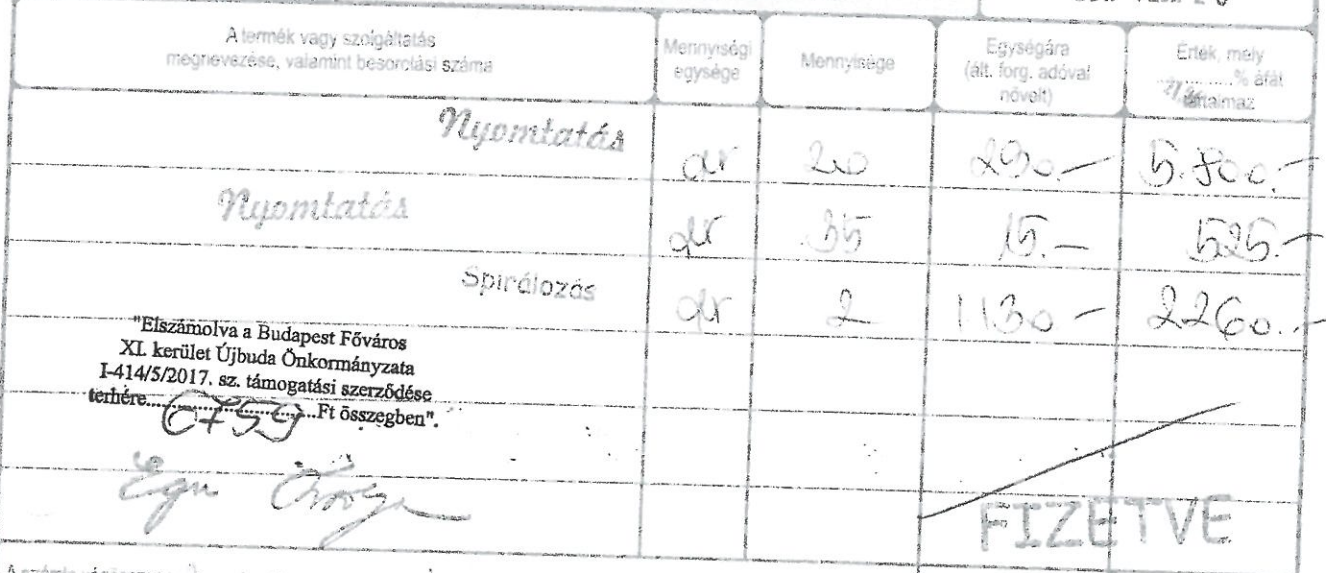 A termék vagy szolgáltatás
megnevezése, valamint besorolási száma
Mennyiségi
egysége
Mennyisége
Egységára
(ált. forg. adóval
növelt)
Érték, mely
............% áfát
tartalmaz
Nyomtatás db 20 290.— 5.800.—
Nyomtatás db 35 15.— 525.—
Spirálozás db 2 1130 — 2260.—
"Elszámolva a Budapest Főváros
XI. kerület Újbuda Önkormányzata
I-414/5/2017. sz. támogatási szerződése
terhére...................Ft összegben".
FIZETVE